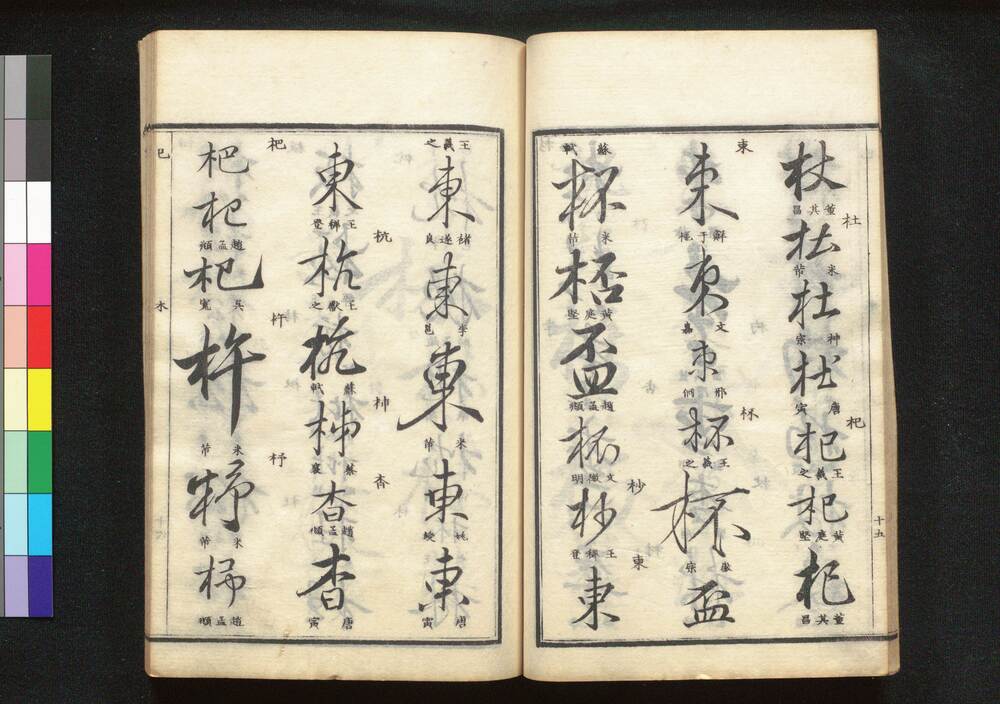 杖
董其昌
杜
杜
米芾
杜
神宗
杜
唐寅
杞
杞
王羲之
杞
黃庭堅
杞
董其昌
十五
東
束
鮮于樞
束
文嘉
束
邢侗
杯
杯
王羲之
杯
徽宗
盃
蘇軾
杯
米芾
桮
黃庭堅
盃
趙孟頫
杯
文徵明
杪
杪
王穉登
東
東
王羲之
東
褚遂良
東
李邕
東
米芾
東
姚綬
東
唐寅
東
王穉登
杭
杭
王獻之
杭
蘇軾
柹
蔡襄
杳
杳
趙孟頫
杳
唐寅
杷
杷
杷
趙孟頫
杷
吳寬
杵
杵
米芾
杼
杼
米芾
趙孟頫
木